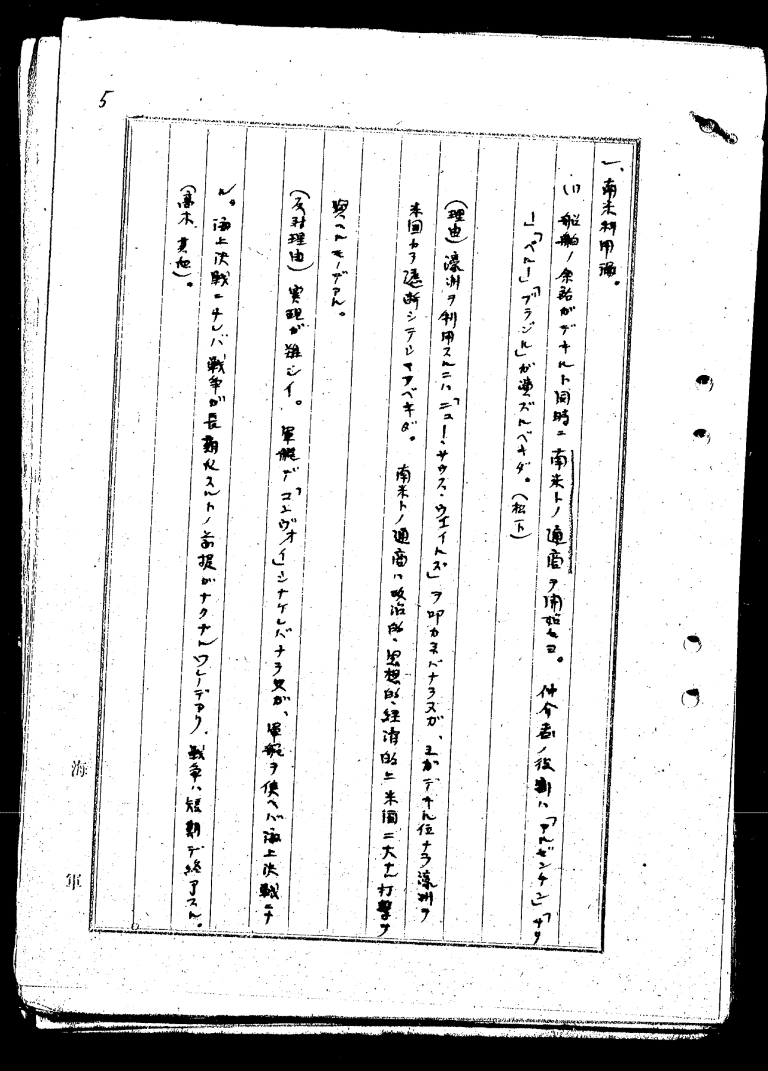 5
一、南米利用論。
(1) 船舶ノ余裕ガデキルト同時ニ南米トノ通商ヲ開始セヨ。 仲介者ノ役割ハ「アルゼンチン」「チリ
ー」「ペルー」「ブラジル」が演ズルベキダ。(松下)
(理由) 濠洲ヲ利用スルニハ「ニュー・サウス・ウエイルズ」ヲ叩カネバナラヌガ、ソレガデキル位ナラ濠洲ヲ
米国カラ遮断シテシマフベキダ。 南米トノ通商ハ政治的・思想的・経済的ニ米国ニ大ナル打撃ヲ
与ヘルモノデアル。
(反対理由) 実現が難シイ。 軍艦デ「コンヴォイ」シナケレバナラヌが、軍艦ヲ使ヘバ海上決戦ニナ
ル。海上決戦ニナレバ戦争が長期化スルトノ前提がナクナルワケデアリ、戦争ハ短期デ終了スル。
(高木、其他)。
海軍